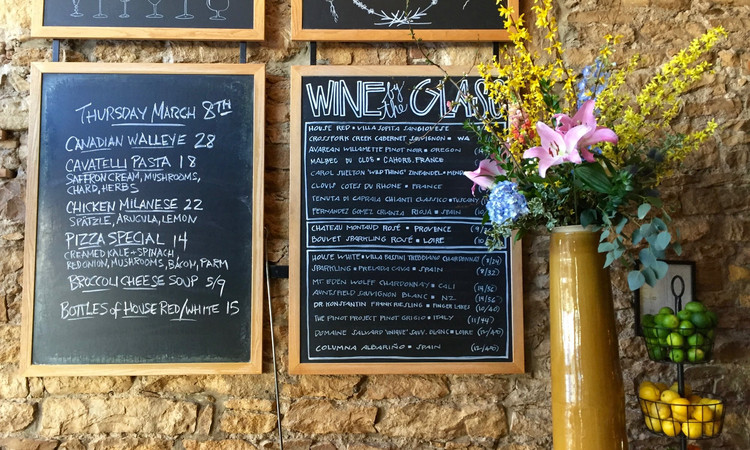 THURSDAY MARCH 8TH
CANADIAN WALLEYE 28
CAVATELLI PASTA 18
SAFFRON CREAM, MUSHROOMS,
CHARD, HERBS
CHICKEN MILANESE 22
SPÄTZLE, ARUCULA, LEMON
PIZZA SPECIAL 14
CREAMED KALE + SPINACH
RED ONION, MUSHROOMS, BACON, PARM
BROCCOLI CHEESE SOUP 5/9
BOTTLES OF HOUSE RED/WHITE 15
WINE by the GLASS
HOUSE RED • VILLA JOPITA SANGIOVESE
CROSSFORK CREEK CABERNET SAUVIGNON • WA
AVERAEN WILLAMETTE PINOT NOIR • OREGON
MALBEC DU CLOS • CAHORS, FRANCE
CAROL SHELTON "WILD THING" ZINFANDEL
CLOVIS COTES DU RHONE • FRANCE
TENUTA DI CAPRAIA CHIANTI CLASSICO • TUSCANY
FERNANDEZ GOMEZ CRIANZA RIOJA • SPAIN
CHATEAU MONTAUD ROSÉ • PROVENCE
BOUVET SPARKLING ROSÉ • LOIRE
HOUSE WHITE • VILLA TREBBIANO CHARDONNAY (8/24)
SPARKLING • CAVA • SPAIN (8/32)
MT EDEN WOLFF CHARDONNAY • CALI (14/56)
SAUVIGNON BLANC • NZ (14/56)
DR KONSTANTIN FRANK RIESLING • FINGER LAKES (10/40)
THE PINOT PROJECT PINOT GRIGIO • ITALY (11/44)
DOMAINE SAUVARD SAUV. BLANC • LOIRE (12/48)
COLUMNA ALBARIÑO • SPAIN (12/48)